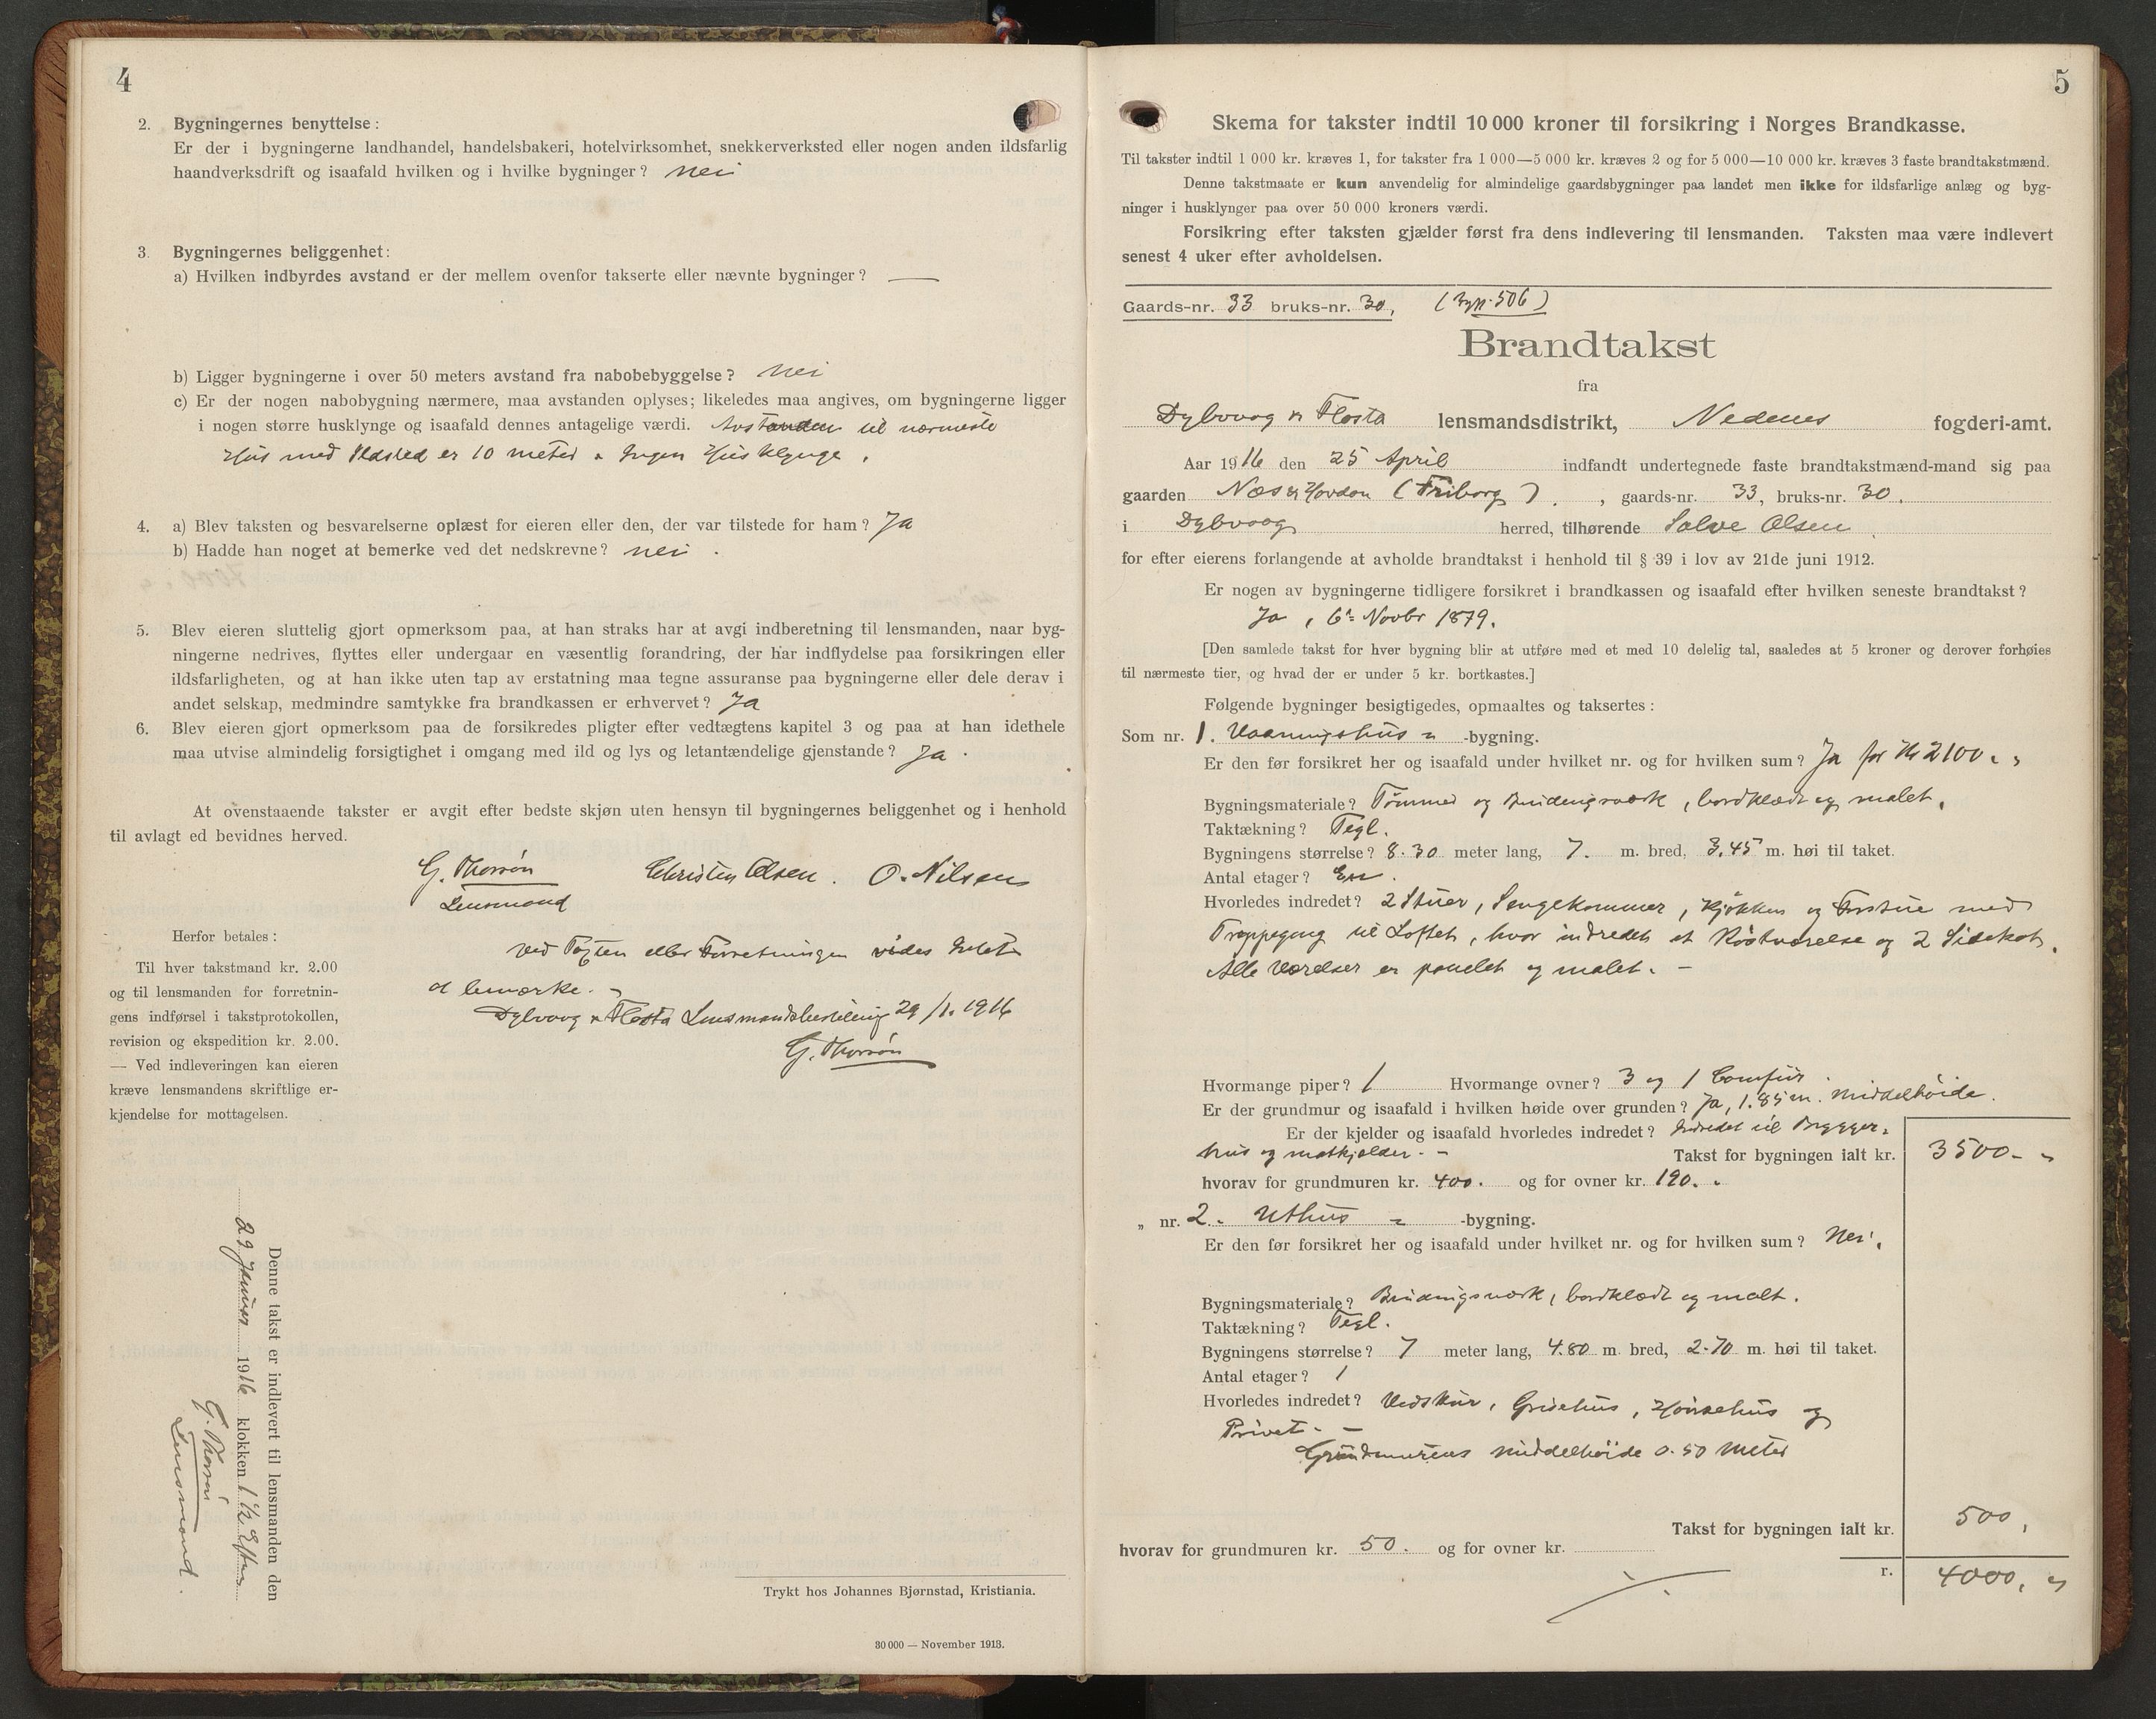 4
2. Bygningernes benyttelse:
Er der i bygningerne landhandel, handelsbakeri, hotelvirksomhet, snekkerverksted eller nogen anden ildsfarlig
haandverksdrift og isaafald hvilken og i hvilke bygninger? nei
3. Bygningernes beliggenhet:
a) Hvilken indbyrdes avstand er der mellem ovenfor takserte eller nævnte bygninger? —
b) Ligger bygningerne i over 50 meters avstand fra nabobebyggelse? nei
c) Er der nogen nabobygning nærmere, maa avstanden oplyses; likeledes maa angives, om bygningerne ligger
i nogen større husklynge og isaafald dennes antagelige værdi. Avstanden til nærmeste
Hus med Ildsted er 10 meter. Ingen Husklynge.
4. a) Blev taksten og besvarelserne oplæst for eieren eller den, der var tilstede for ham? Ja
b) Hadde han noget at bemerke ved det nedskrevne? nei.
5. Blev eieren sluttelig gjort opmerksom paa, at han straks har at avgi indberetning til lensmanden, naar byg-
ningerne nedrives, flyttes eller undergaar en væsentlig forandring, der har indflydelse paa forsikringen eller
ildsfarligheten, og at han ikke uten tap av erstatning maa tegne assuranse paa bygningerne eller dele derav i
andet selskap, medmindre samtykke fra brandkassen er erhvervet? Ja
6. Blev eieren gjort opmerksom paa de forsikredes pligter efter vedtægtens kapitel 3 og paa at han idethele
maa utvise almindelig forsigtighet i omgang med ild og lys og letantændelige gjenstande? Ja.
At ovenstaaende takster er avgit efter bedste skjøn uten hensyn til bygningernes beliggenhet og i henhold
til avlagt ed bevidnes herved.
G. Thorsøn Christen Olsen. O. Nilsen
Lensmand
Herfor betales:
Til hver takstmand kr. 2.00
og til lensmanden for forretnin-
gens indførsel i takstprotokollen,
revision og ekspedition kr. 2.00.
— Ved indleveringen kan eieren
kræve lensmandens skriftlige er-
kjendelse for mottagelsen.
ved Taxten eller Forretningen vides Intet
at bemærke. -
Dybvaag & Flosta Lensmandsbestilling 29/1. 1916
G. Thorsøn
Denne takst er indlevert til lensmanden den
29 Januar 1916 klokken 1 1/2 Efterm
G. Thorsøn
Lensmand.
Trykt hos Johannes Bjørnstad, Kristiania.
30 000 — November 1913.
5
Skema for takster indtil 10 000 kroner til forsikring i Norges Brandkasse.
Til takster indtil 1 000 kr. kræves 1, for takster fra 1 000—5 000 kr. kræves 2 og for 5 000—10 000 kr. kræves 3 faste brandtakstmænd.
Denne takstmaate er kun anvendelig for almindelige gaardsbygninger paa landet men ikke for ildsfarlige anlæg og byg-
ninger i husklynger paa over 50 000 kroners værdi.
Forsikring efter taksten gjælder først fra dens indlevering til lensmanden. Taksten maa være indlevert
senest 4 uker efter avholdelsen.
Gaards-nr. 33 bruks-nr. 30, 506)
Brandtakst
fra
Dybvaag & Flosta lensmandsdistrikt, Nedenes fogderi-amt.
Aar 1916 den 25 April indfandt undertegnede faste brandtakstmænd-mand sig paa
gaarden Næs (Friborg), gaards-nr. 33, bruks-nr. 30.
i Dybvaag herred, tilhørende Salve Olsen
for efter eierens forlangende at avholde brandtakst i henhold til § 39 i lov av 21de juni 1912.
Er nogen av bygningerne tidligere forsikret i brandkassen og isaafald efter hvilken seneste brandtakst?
Ja, 6te Novbr 1879.
[Den samlede takst for hver bygning blir at utføre med et med 10 delelig tal, saaledes at 5 kroner og derover forhøies
til nærmeste tier, og hvad der er under 5 kr. bortkastes.]
Følgende bygninger besigtigedes, opmaaltes og taksertes:
Som nr. 1. Vaaningshus -bygning.
Er den før forsikret her og isaafald under hvilket nr. og for hvilken sum? Ja for Kr 2100.
Bygningsmateriale? Tømmer og Bindingsværk, bordklædt og malet.
Taktækning? Tegl.
Bygningens størrelse? 8.30 meter lang, 7. m. bred, 3.45 m. høi til taket.
Antal etager? En.
Hvorledes indredet? 2 Stuer, Sengekammer, Kjøkken og Forstue med
Trappegang til Loftet, hvor indredet et Kvistværelse og 2 Sidekot.
Alle Værelser er panelet og malet. -
Hvormange piper? 1 Hvormange ovner? 3 og 1 Comfur
Er der grundmur og isaafald i hvilken høide over grunden? Ja, 1.85 m. middelhøide.
Er der kjelder og isaafald hvorledes indredet? Indredet til Brygger-
hus og matkjelder. - Takst for bygningen ialt kr. 3500.-
hvorav for grundmuren kr. 400. og for ovner kr. 190.
„ nr. 2. Uthus -bygning.
Er den før forsikret her og isaafald under hvilket nr. og for hvilken sum? Nei.
Bygningsmateriale? Bindingsværk, bordklædt og malt.
Taktækning? Tegl.
Bygningens størrelse? 7 meter lang, 4.80 m. bred, 2.70 m. høi til taket.
Antal etager? 1
Hvorledes indredet? Vedskur, Grisehus, Hønsehus og
Privet. -
Grundmurens middelhøide 0.50 meter
Takst for bygningen ialt kr. 500,
hvorav for grundmuren kr. 50. og for ovner kr.
r. 4000,